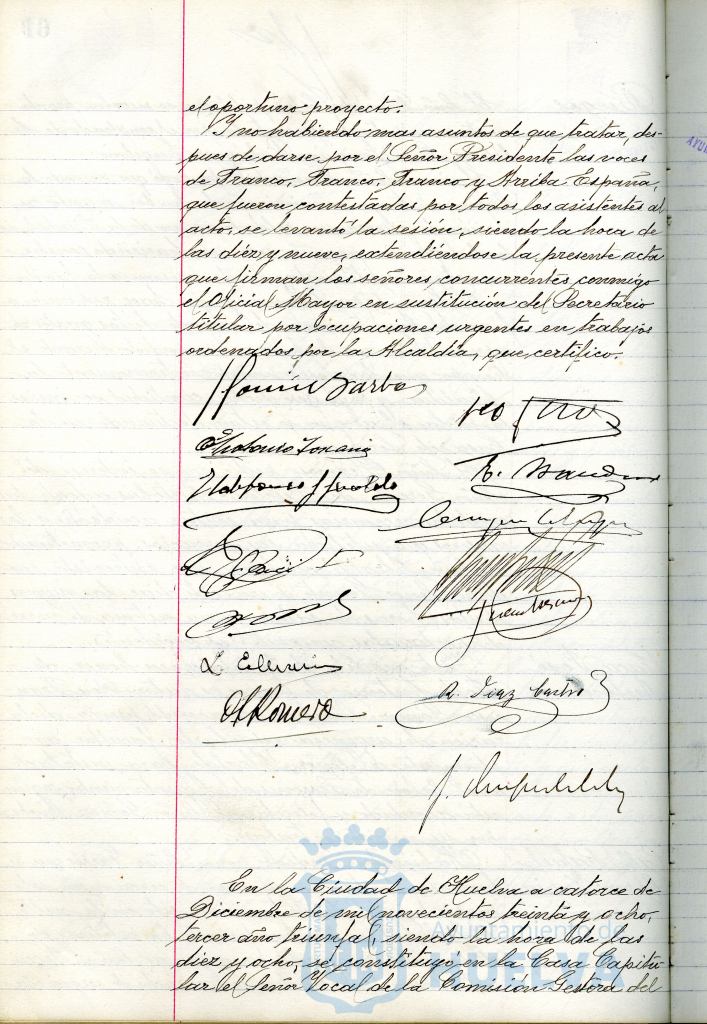 el oportuno proyecto.
Y no habiendo mas asuntos de que tratar, des-
pues de darse por el Señor Presidente las voces
de Franco, Franco, Franco y Arriba España,
que fueron contestadas por todos los asistentes al
acto, se levantó la sesión, siendo la hora de
las diez y nueve, extendiéndose la presente acta
que firman los señores concurrentes conmigo
el Oficial Mayor en sustitución del Secretario
titular por ocupaciones urgentes en trabajos
ordenados por la Alcaldía, que certifico.
Barba
Ildefonso
Romero
R. Diaz Castro
En la Ciudad de Huelva a catorce de
Diciembre de mil novecientos treinta y ocho,
tercer año triunfal, siendo la hora de las
diez y ocho, se constituyo en la Casa Capitu-
lar el Señor Vocal de la Comisión Gestora del
Ayuntamiento de
HUELVA